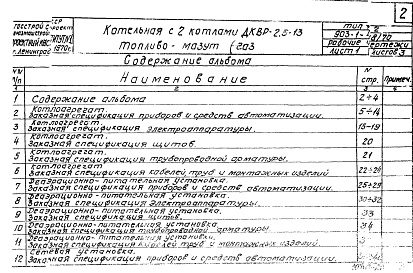 2
ГОССТРОЙ С
г. Ленинград
1970г.
Котельная с 2 котлами ДКВР-2.5-13
Топливо - мазут (газ
Содержание альбома
тип
903-1-
8/70
рабочие чертежи
лист 1 листов 3
Содержание альбома
NN п/п
Наименование
N стр.
Примеч.
1 2 3 4
1 Содержание альбома 2÷4
2 Котлоагрегат. Заказная спецификация приборов и средств автоматизации. 5÷14
3 Котлоагрегат. Заказная спецификация электроаппаратуры. 15-19
4 Котлоагрегат. Заказная спецификация щитов. 20
5 Котлоагрегат. Заказная спецификация трубопроводной арматуры. 21
6 Котлоагрегат Заказная спецификация кабелей труб и монтажных изделий 22÷24
7 Деаэрационно-питательная установка. Заказная спецификация приборов и средств автоматизации. 25÷29
8 Деаэрационно-питательная установка. Заказная спецификация электроаппаратуры. 30÷32
9 Деаэрационно-питательная установка. Заказная спецификация щитов. 33
10 Деаэрационно-питательная установка Заказная спецификация трубопроводной арматуры 34
11 Деаэрационно-питательная установка. Заказная спецификация кабелей труб и монтажных изделий
12 Сетевая установка. Заказная спецификация приборов и средств автоматизации.